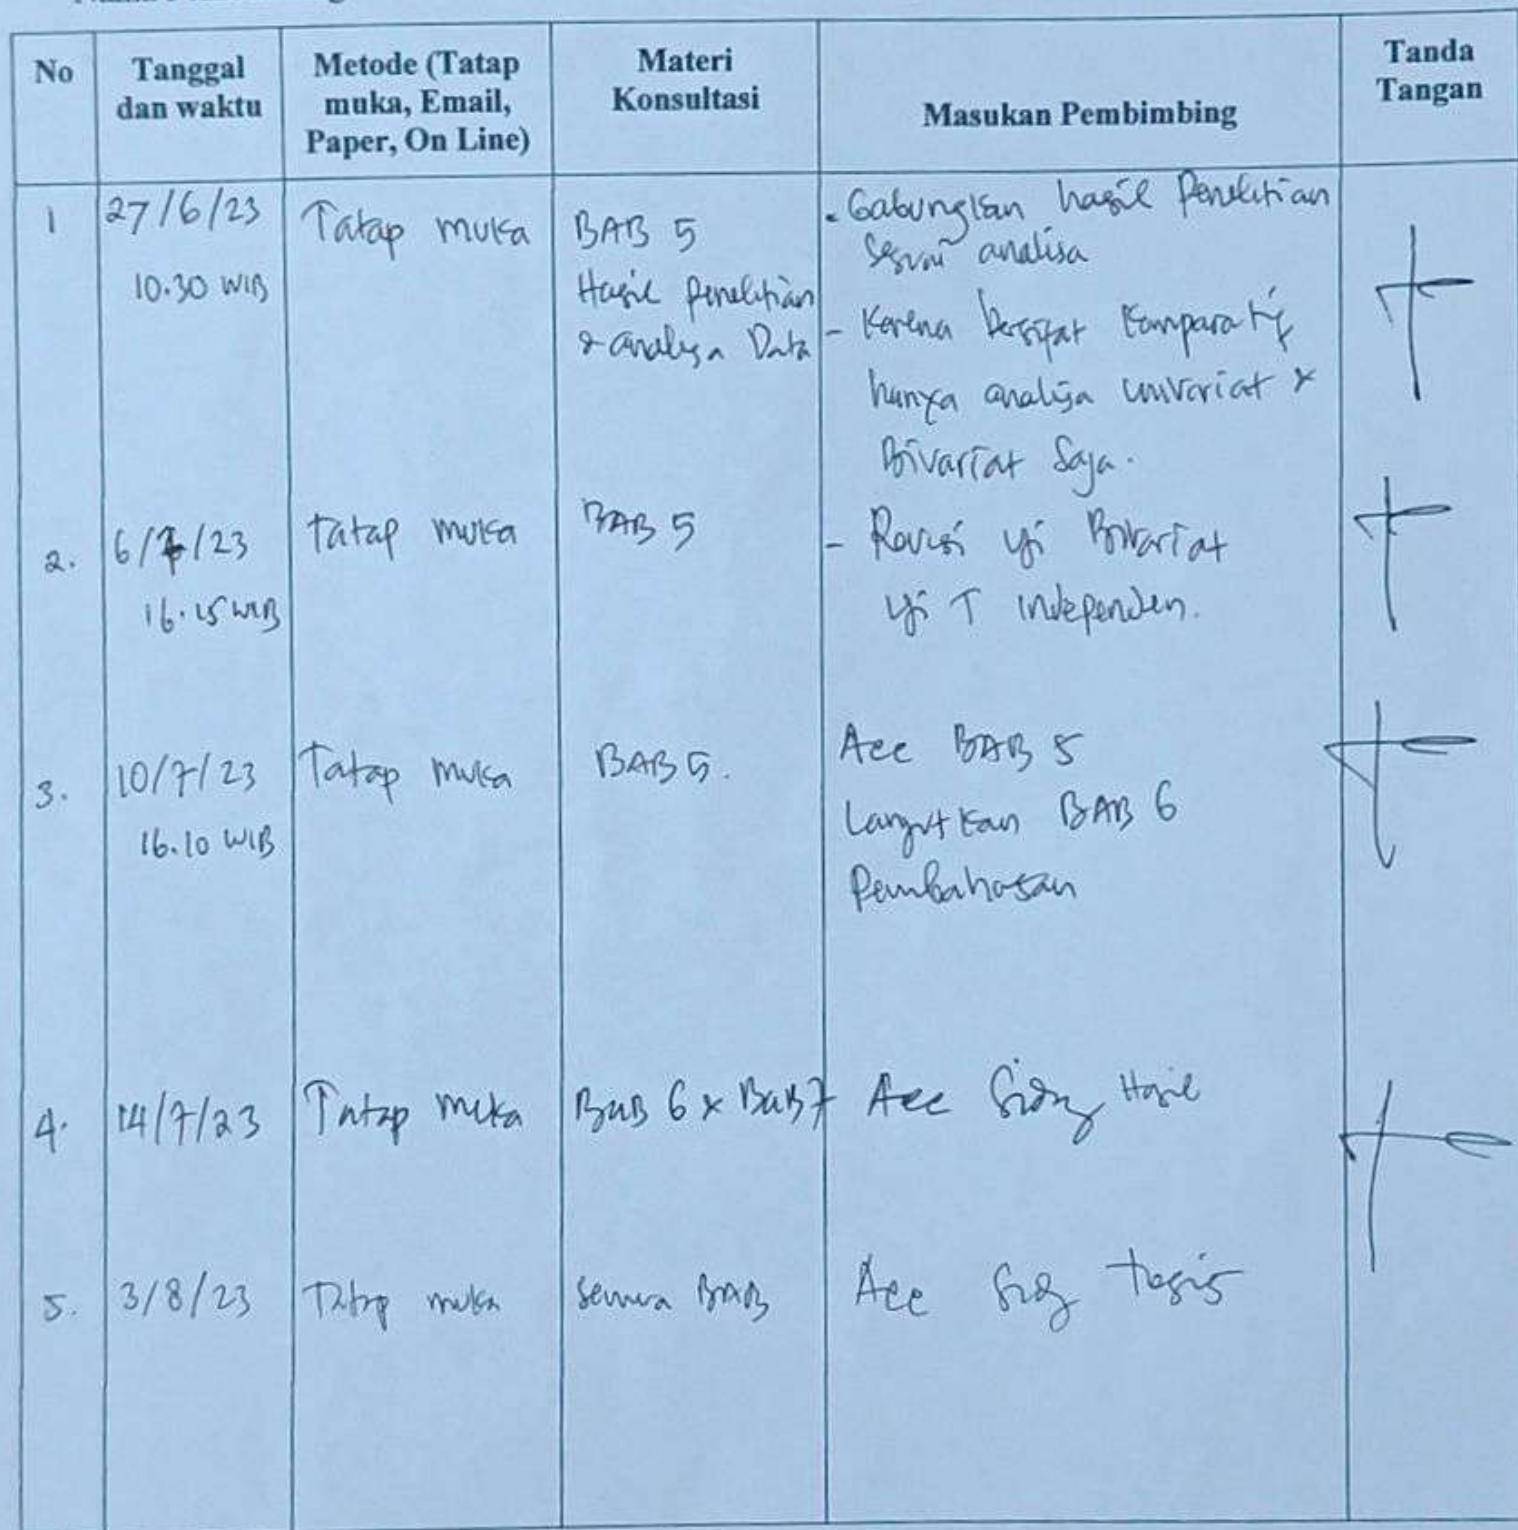 No
Tanggal
dan waktu
Metode (Tatap
muka, Email,
Paper, On Line)
Materi
Konsultasi
Masukan Pembimbing
Tanda
Tangan
1
27/6/23
10.30 WIB
Tatap muka
BAB 5
Hasil penelitian
& analisa Data
- Gabungkan hasil Penelitian
sesuai analisa
- Karena bersifat komparatif
hanya analisa univariat &
Bivariat Saja.
2.
6/7/23
16.15 WIB
Tatap muka
BAB 5
- Revisi uji Bivariat
uji T independen.
3.
10/7/23
16.10 WIB
Tatap muka
BAB 5.
Acc BAB 5
Lanjutkan BAB 6
Pembahasan
4.
14/7/23
Tatap muka
BAB 6 & BAB 7
Acc Sidang Hasil
5.
3/8/23
Tatap muka
Semua BAB
Acc Sidang tesis